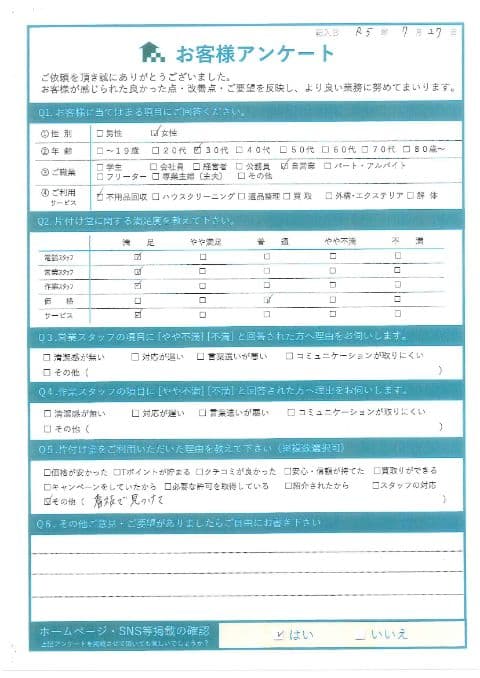 記入日 R5 年 7 月 27 日
お客様アンケート
ご依頼を頂き誠にありがとうございました。
お客様が感じられた良かった点・改善点・ご要望を反映し、より良い業務に努めてまいります。
Q1. お客様に当てはまる項目にご回答ください。
①性 別 □男性 ☑女性
②年 齢 □~19歳 □20代 ☑30代 □40代 □50代 □60代 □70代 □80歳~
③ご職業 □学生 □会社員 □経営者 □公務員 ☑自営業 □パート・アルバイト
□フリーター □専業主婦(主夫) □その他
④ご利用サービス ☑不用品回収 □ハウスクリーニング □遺品整理 □買取 □外構・エクステリア □解体
Q2. 片付け堂に関する満足度を教えて下さい。
満足 やや満足 普通 やや不満 不満
電話スタッフ ☑ □ □ □ □
営業スタッフ ☑ □ □ □ □
作業スタッフ ☑ □ □ □ □
価格 □ □ ☑ □ □
サービス ☑ □ □ □ □
Q3. 営業スタッフの項目に[やや不満][不満]と回答された方へ理由をお伺いします。
□清潔感が無い □対応が遅い □言葉遣いが悪い □コミュニケーションが取りにくい
□その他( )
Q4. 作業スタッフの項目に[やや不満][不満]と回答された方へ理由をお伺いします。
□清潔感が無い □対応が遅い □言葉遣いが悪い □コミュニケーションが取りにくい
□その他( )
Q5. 片付け堂をご利用いただいた理由を教えて下さい(※複数選択可)
□価格が安かった □Tポイントが貯まる □クチコミが良かった □安心・信頼が持てた □買取りができる
□キャンペーンをしていたから □必要な許可を取得している □紹介されたから □スタッフの対応
☑その他( 看板で見つけて )
Q6. その他ご意見・ご要望がありましたらご自由にお書き下さい
ホームページ・SNS等掲載の確認 ☑はい □いいえ
上記アンケートを掲載させて頂いても宜しいでしょうか?